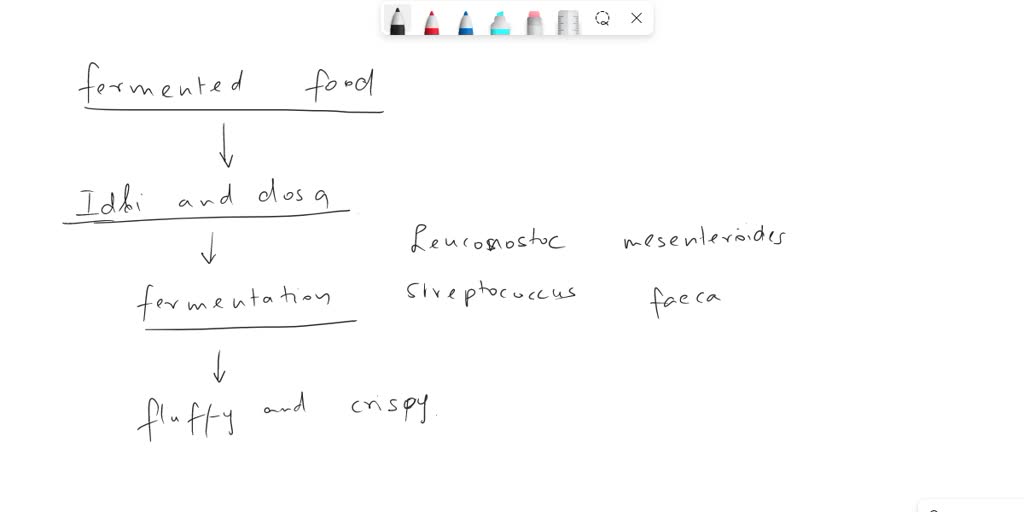 fermented food
Idli and dosa
Leuconostoc mesenteroides
fermentation
Streptococcus faeca
fluffy and crispy.